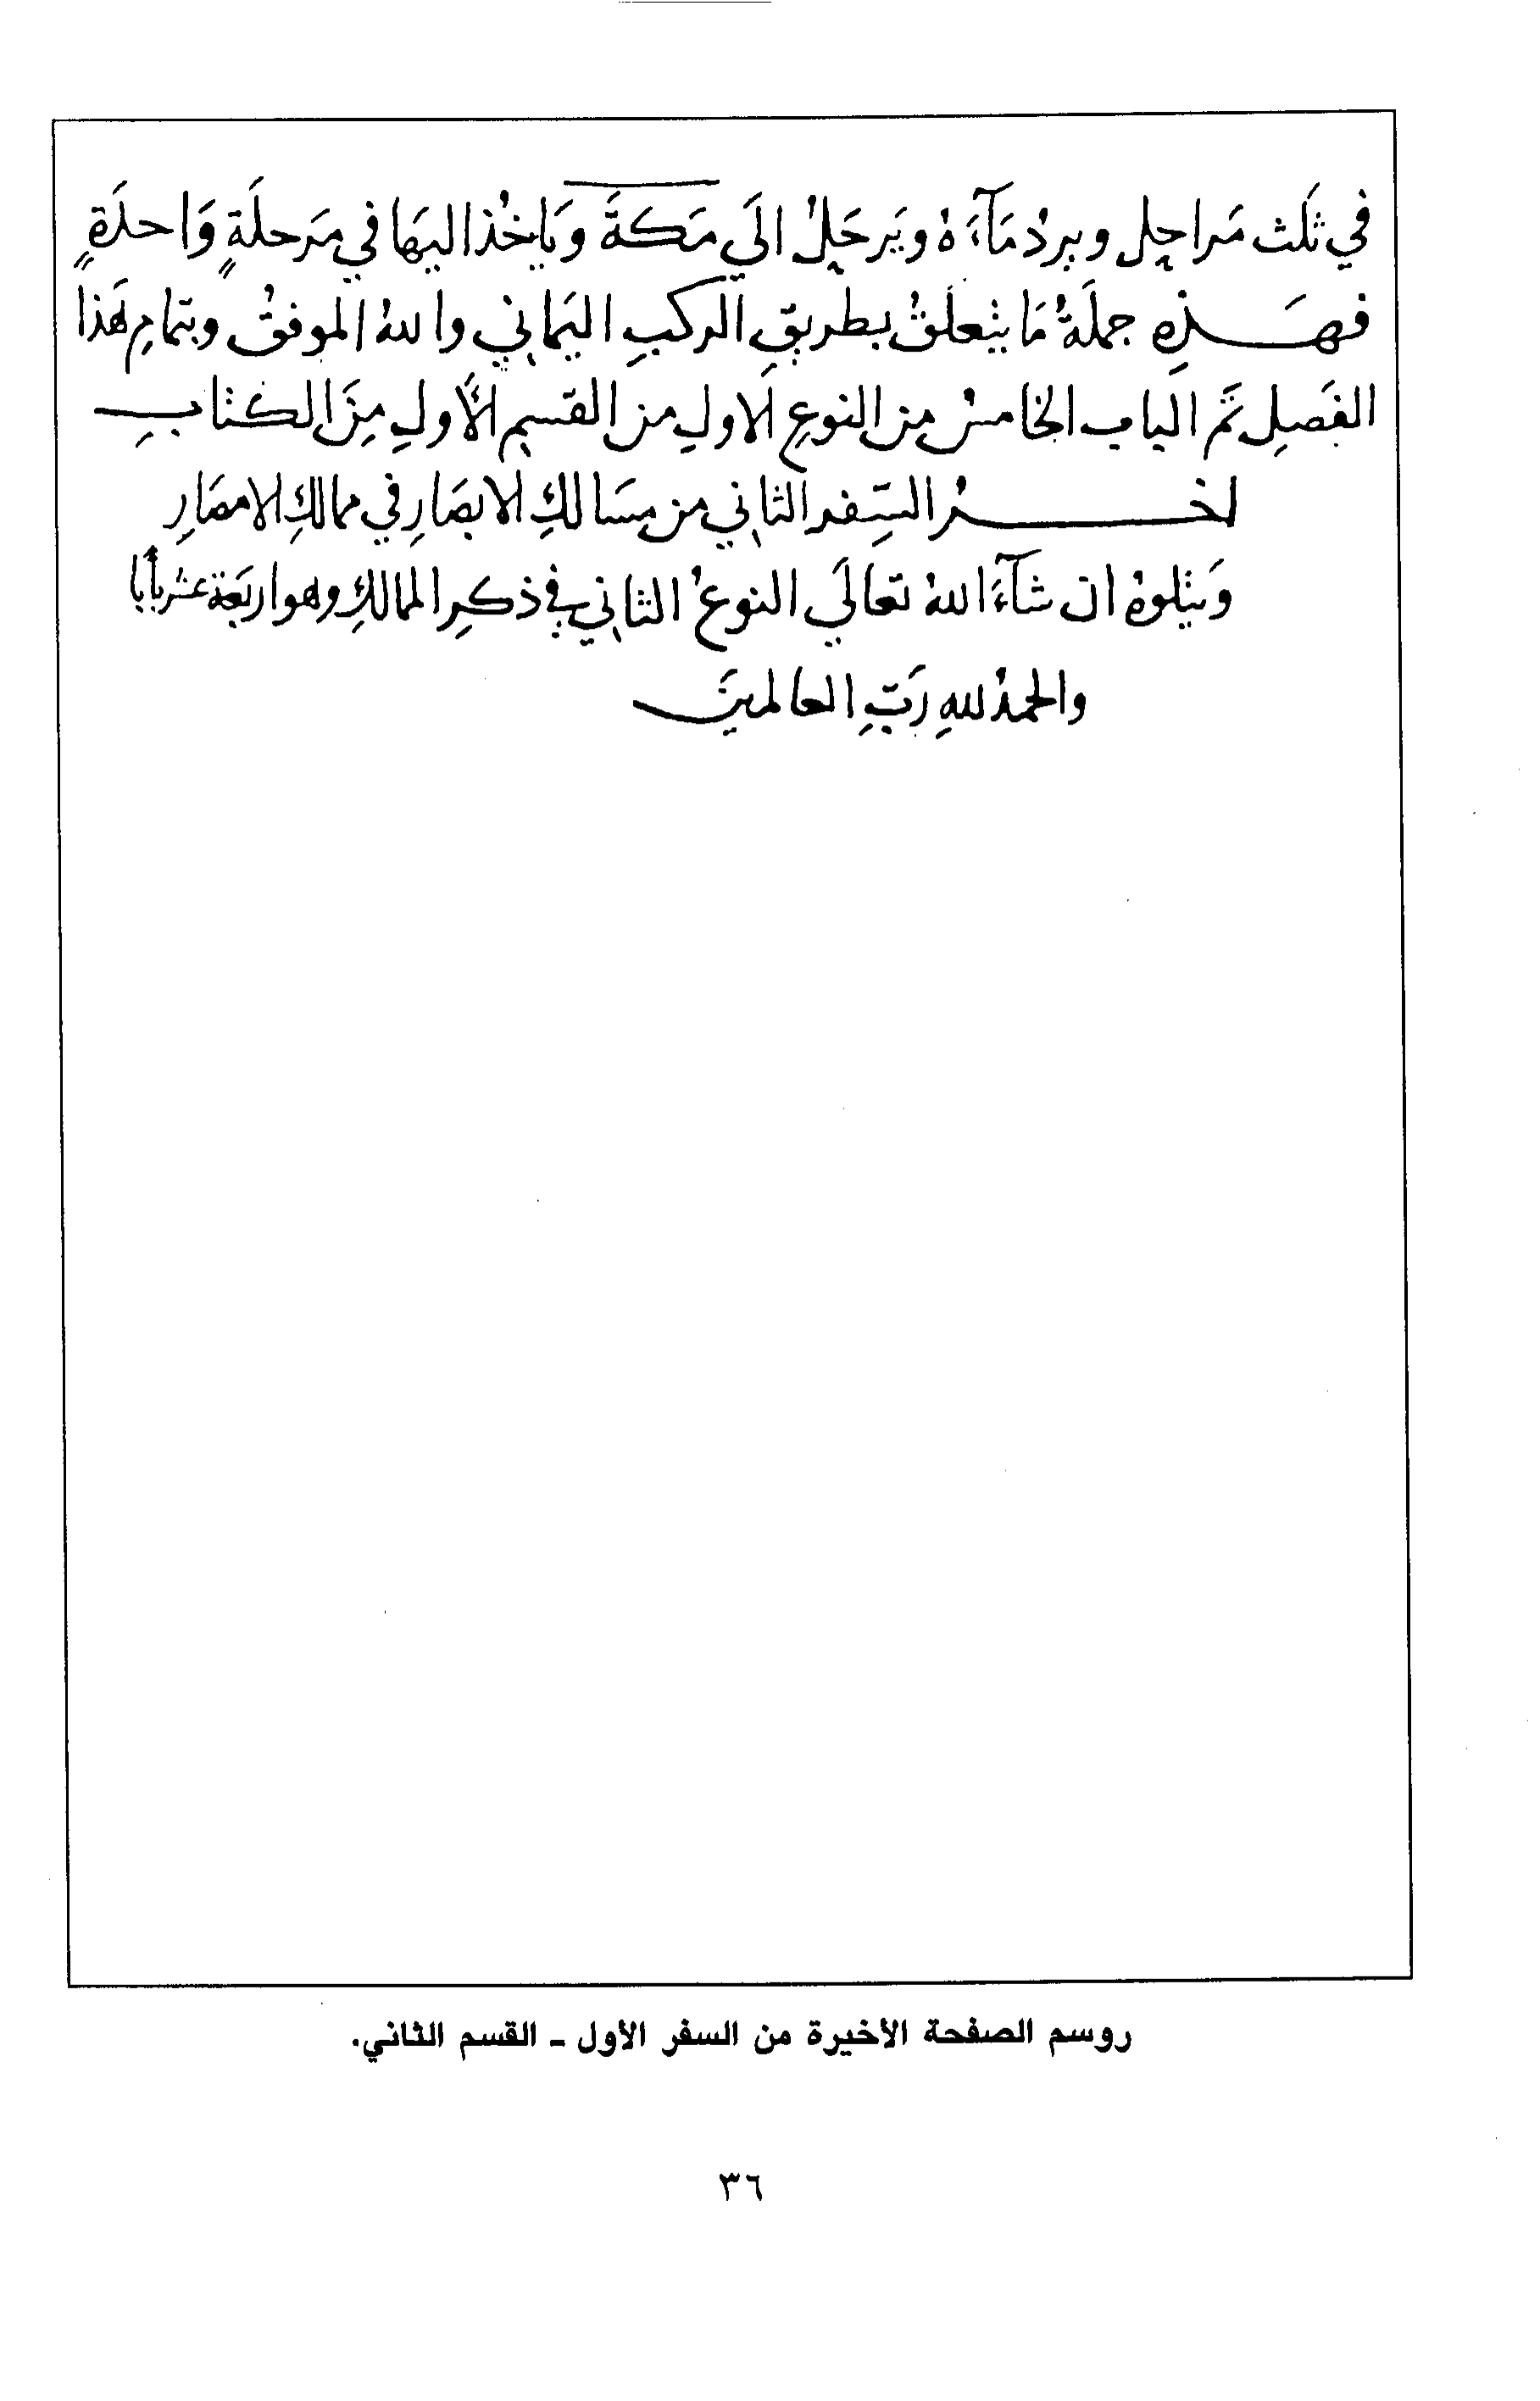 في ثلث مَراحِل ويرِدُ مَآءَهُ ويَرحَلُ الَي مَكةَ وَيَاخُذ اليهَا في مَرحلَةٍ وَاحدَةٍ
فهَذِهِ جملَةُ مَا يتعلقُ بطريقِ الركبِ اليَماني واللهُ الموفقُ وبتمامِ هَذا
الفَصلِ تَم الباب الخامسُ من النوعِ الاولِ من القسمِ الأَولِ مِنَ الكتابِ
اخرُ السِّفر الثاني من مسَالكِ الابصَارِ في ممالكِ الامصَارِ
وَيتلوهُ ان شآءَ اللهُ تعَالَي النوعُ الثاني في ذكرِ الممالكِ وهو اربَعة عشر بأبا
والحمدُ للهِ رَبِّ العالمينَ
روسم الصفحة الأخيرة من السفر الأول ـ القسم الثاني.
٣٦